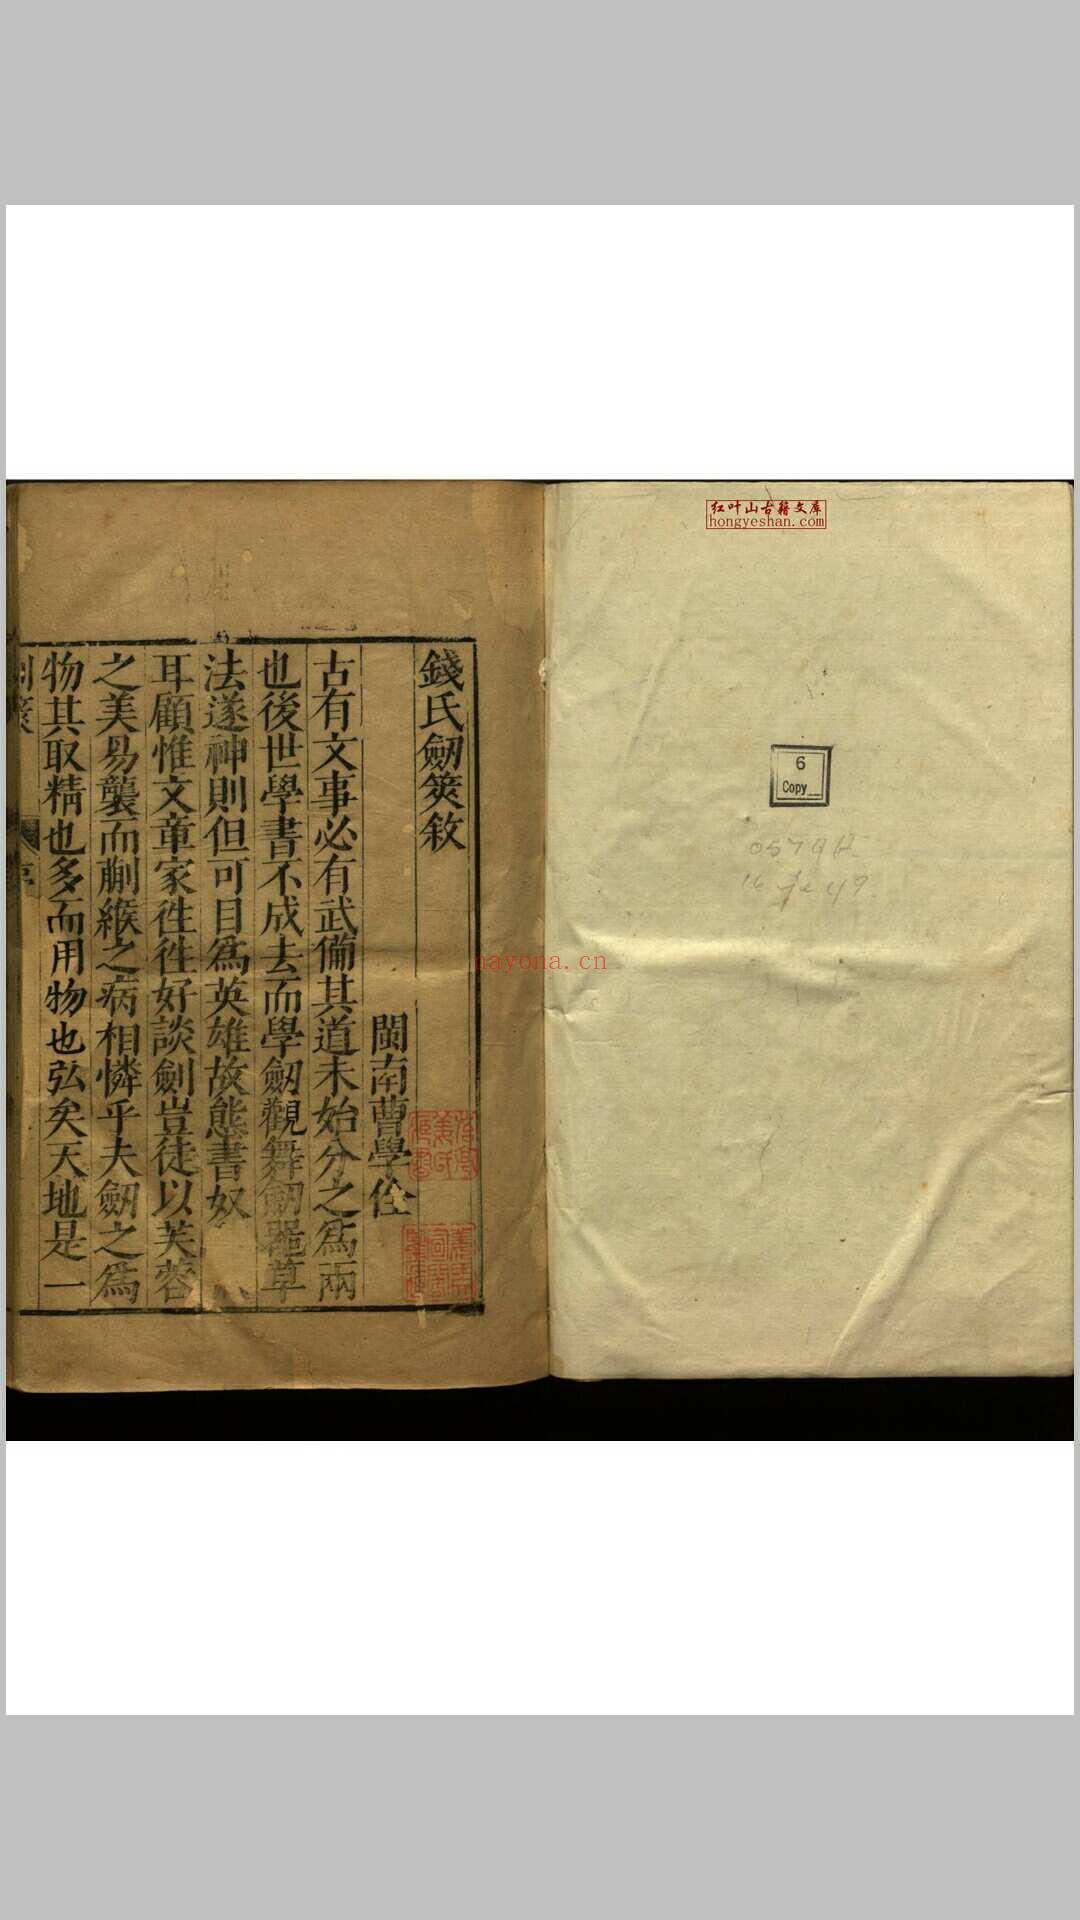 红叶山古籍文库
hongyeshan.com
6
Copy
nayona.cn
錢氏劒筴敘
閩南曹學佺
古有文事必有武備其道未始分之為兩
也後世學書不成去而學劒觀舞劒器草
法遂神則但可目為英雄故態書奴
耳顧惟文章家徃徃好談劍豈徒以芙蓉
之美易襲而蒯緱之病相憐乎夫劒之為
物其取精也多而用物也弘矣天地是一